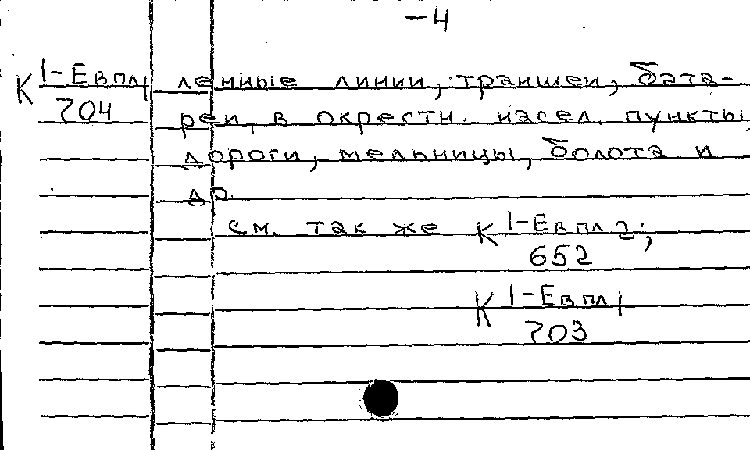 -4
К 1-Евпл1 ленные линии, траншеи, бата-
704 реи, в окрестн. насел. пункты,
дороги, мельницы, болота и
др.
см. так же К 1-Евпл2;
652
К 1-Евпл1
703